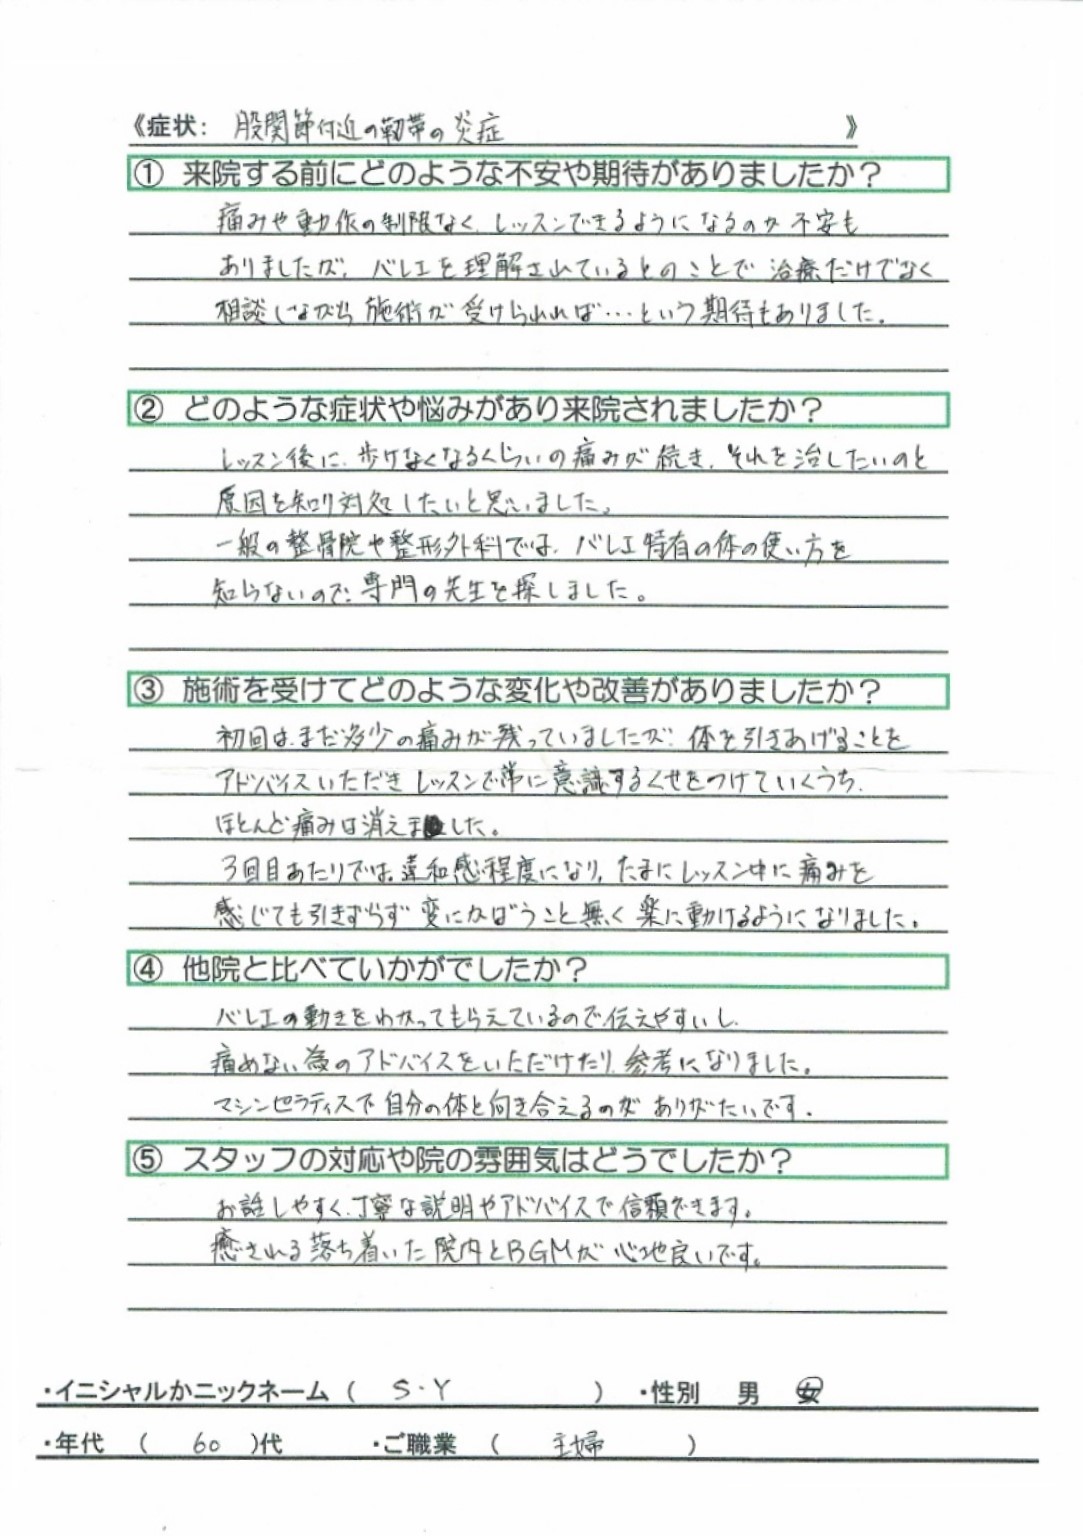 《症状: 股関節付近の靭帯の炎症 》
① 来院する前にどのような不安や期待がありましたか？
痛みや動作の制限なく、レッスンできるようになるのか不安も
ありましたが、バレエを理解されているとのことで治療だけでなく
相談しながら施術が受けられれば…という期待もありました。
② どのような症状や悩みがあり来院されましたか？
レッスン後に、歩けなくなるくらいの痛みが続き、それを治したいのと
原因を知り対処したいと思いました。
一般の整骨院や整形外科では、バレエ特有の体の使い方を
知らないので、専門の先生を探しました。
③ 施術を受けてどのような変化や改善がありましたか？
初回は、まだ多少の痛みが残っていましたが、体を引きあげることを
アドバイスいただき レッスンで常に意識するくせをつけていくうち、
ほとんど痛みは消えました。
3回目あたりでは、違和感程度になり、たまにレッスン中に痛みを
感じても引きずらず 変にかばうこと無く 楽に動けるようになりました。
④ 他院と比べていかがでしたか？
バレエの動きをわかってもらえているので伝えやすいし、
痛めない為のアドバイスをいただけたり、参考になりました。
マシンピラティスで自分の体と向き合えるのが ありがたいです。
⑤ スタッフの対応や院の雰囲気はどうでしたか？
お話しやすく、丁寧な説明やアドバイスで信頼できます。
癒される落ち着いた院内とBGMが心地良いです。
・イニシャルかニックネーム ( S・Y ) ・性別 男 女
・年代 ( 60 )代 ・ご職業 ( 主婦 )